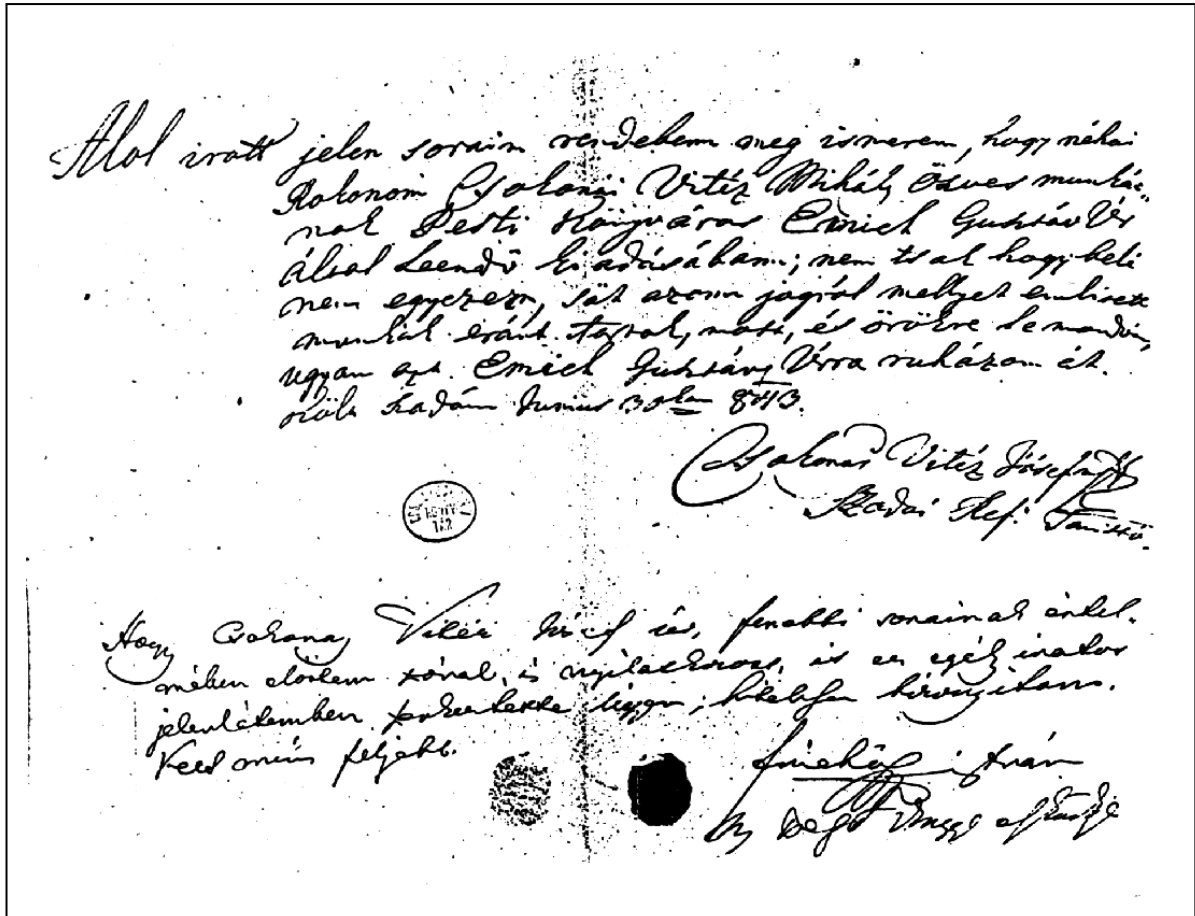 Alol iratt jelen soraim rendeben meg ismerem, hogy néhai
Rokonom Csokonai Vitéz Mihály Ösves munkái-
nak Pesti Könyváros Emich Gusztáv Úr
által Leendö ki adásában; nem tsak hogy beli
nem egyezem, söt azon jogról mellyet emlitett
munkák eránt tartok, most, és örökre le mondván,
ugyan azt Emich Gusztáv Úrra ruházom át.
Szadán Junius 30kán 843.
Csokonai Vitéz Jósef
Szadai Ref. Tanitó.
Hogy Csokonay Vitéz József úr, fenebbi sorainak értel-
mében elöttem szóval is nyilatkozott, és ezen egész iratot
jelenlétemben, hitelesen bizonyitom.
Kelt mint feljebb.
István